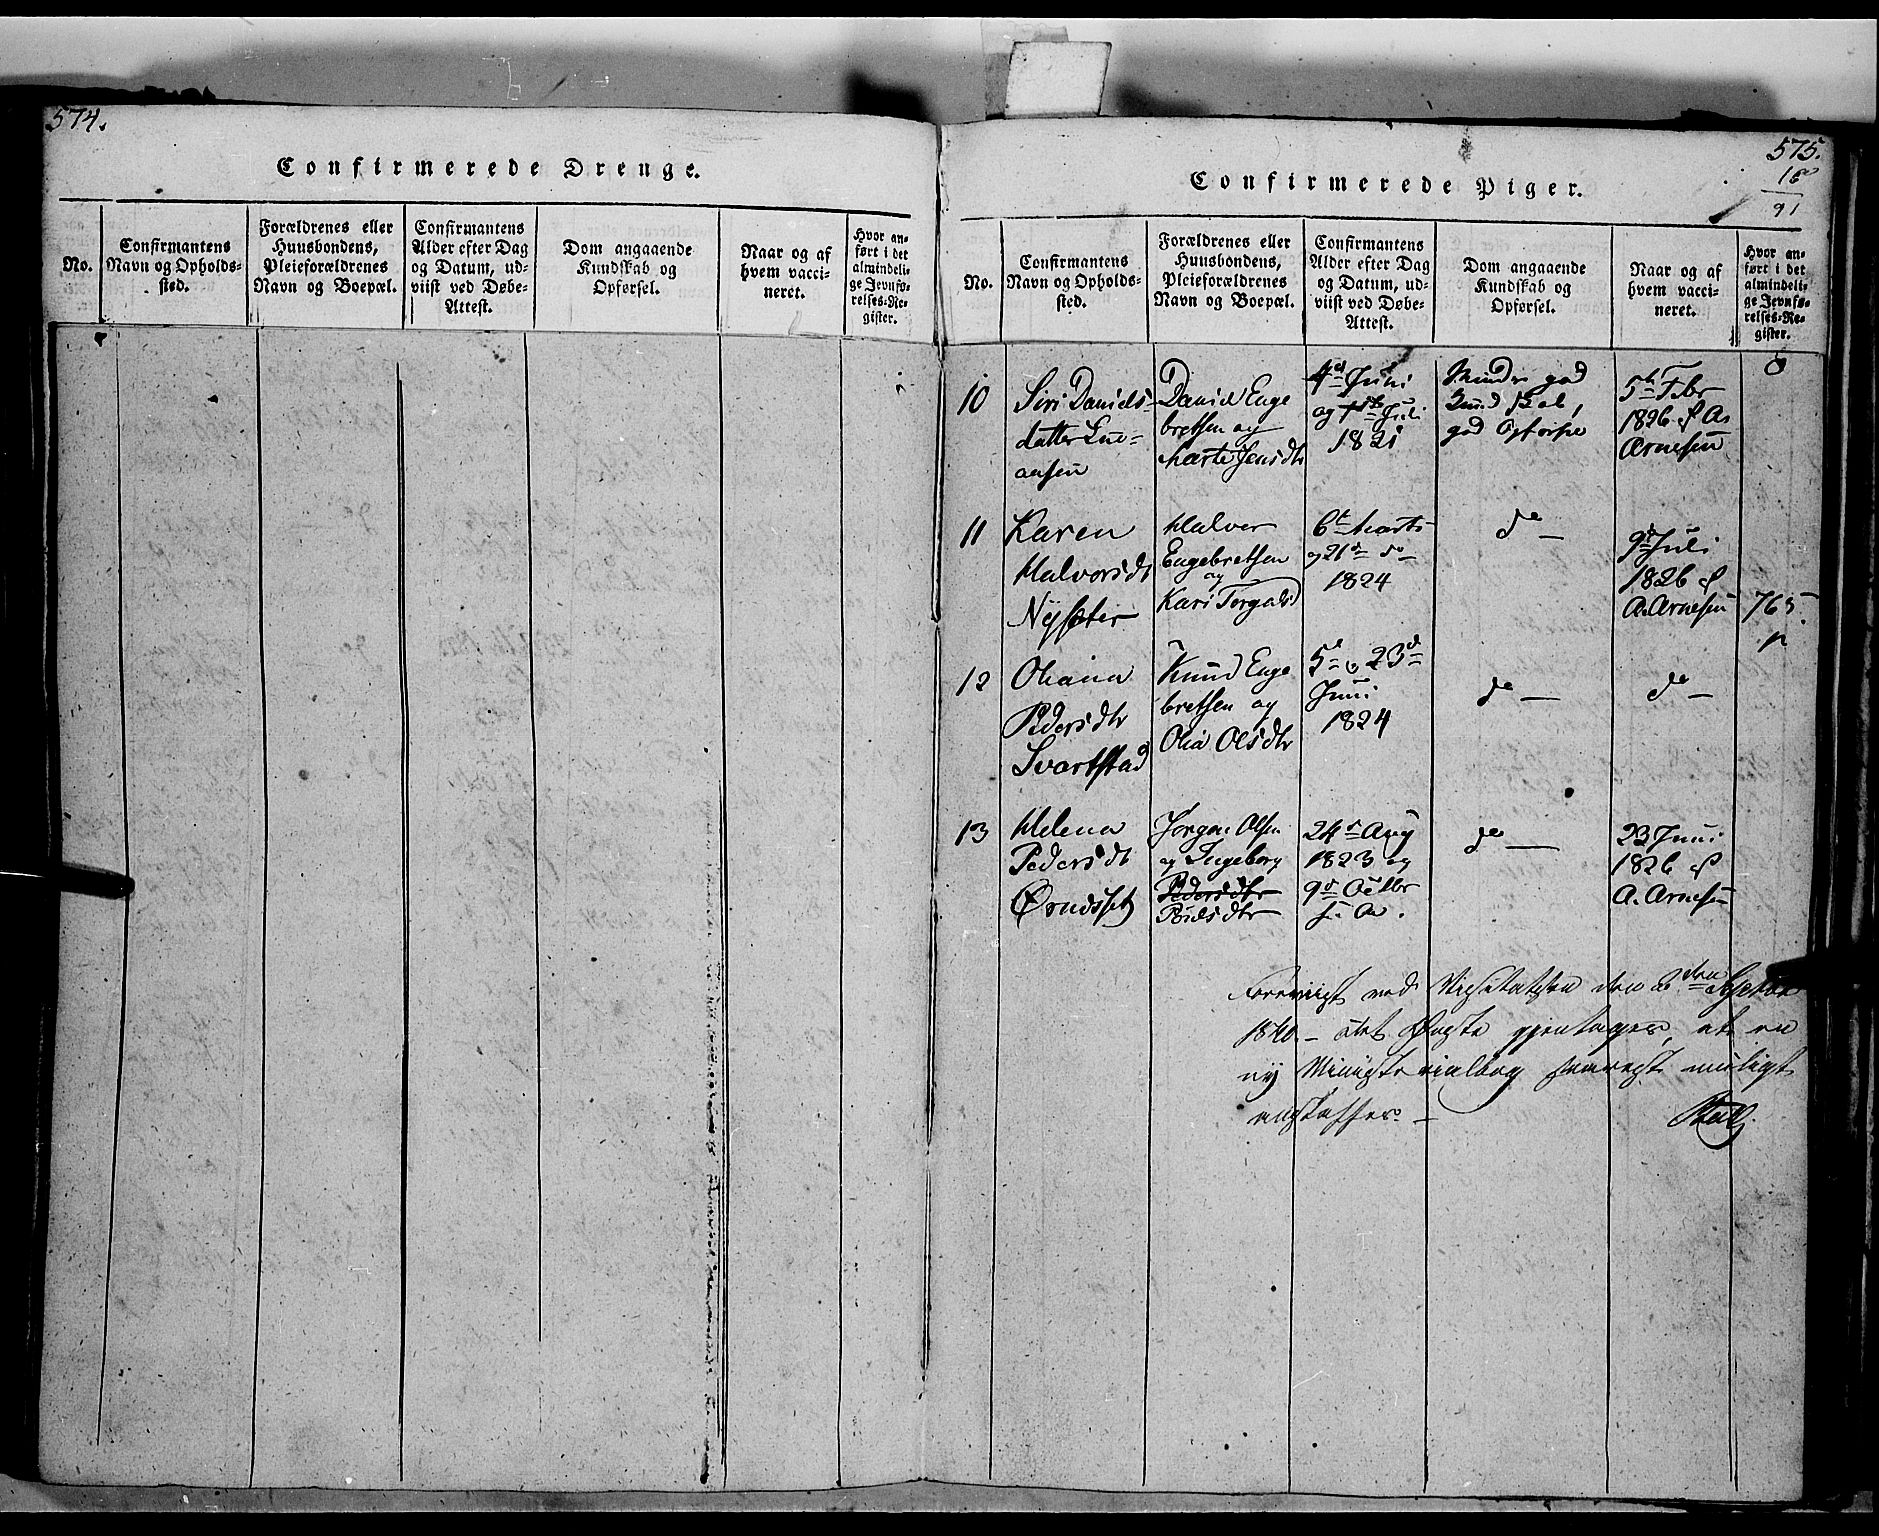 574.
Confirmerede Drenge.
No.
Confirmantens
Navn og Opholds-
sted.
Forældrenes eller
Huusbondens,
Pleieforældrenes
Navn og Boepæl.
Confirmantens
Alder efter Dag
og Datum, ud-
viist ved Døbe-
Attest.
Dom angaaende
Kundskab og
Opførsel.
Naar og af
hvem vacci-
neret.
Hvor an-
ført i det
almindeli-
ge Jevnfø-
relses-Re-
gister.
575.
16
91
Confirmerede Piger.
No.
Confirmantens
Navn og Opholds-
sted.
Forældrenes eller
Huusbondens,
Pleieforældrenes
Navn og Boepæl.
Confirmantens
Alder efter Dag
og Datum, ud-
viist ved Døbe-
Attest.
Dom angaaende
Kundskab og
Opførsel.
Naar og af
hvem vacci-
neret.
Hvor an-
ført i det
almindeli-
ge Jevnfø-
relses-Re-
gister.
10
Siri Daniels-
datter
aasen
Daniel Enge
bretsen og
Marte Jensdtr
4d Juni
og Juli
1821
Mindre god
Kundskab,
god Opførsel
5te Febr
1826 af A.
Arnesen
11
Karen
Halvorsdt
Nysæter
Halvor
Engebretsen
og
Kari Torgalsd
6t Marts
og 21d do
1824
do —
9d Juli
1826 af
A. Arnesen
765.
12
Oliana
Pedersdtr
Svartstad
Knud Enge
bretsen og
Olia Olsdtr
5d og 23d
Juni
1824
do —
do —
13
Helena
Pedersdt
Ørudsset
Jørgen Olsen
og Ingeborg
Pedersdtr
Poulsdtr
24d Aug
1823 og
9d Octbr
s. A.
do —
23 Juni
1826 af
A. Arnesen
Foreviist ved Visitatsen den den Septbr
1840. — det Ønske gjentages, at en
ny Ministerialbog snarest muligt
anskaffes. —